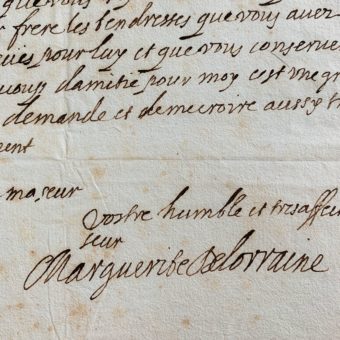 que vous
frere les tendresses que vous aues
pour luy et que vous conserues
damitie pour moy cest me
demande et de me croire aussy
ma seur
Vostre humble et tres affe
seur
Marguerite De lorraine